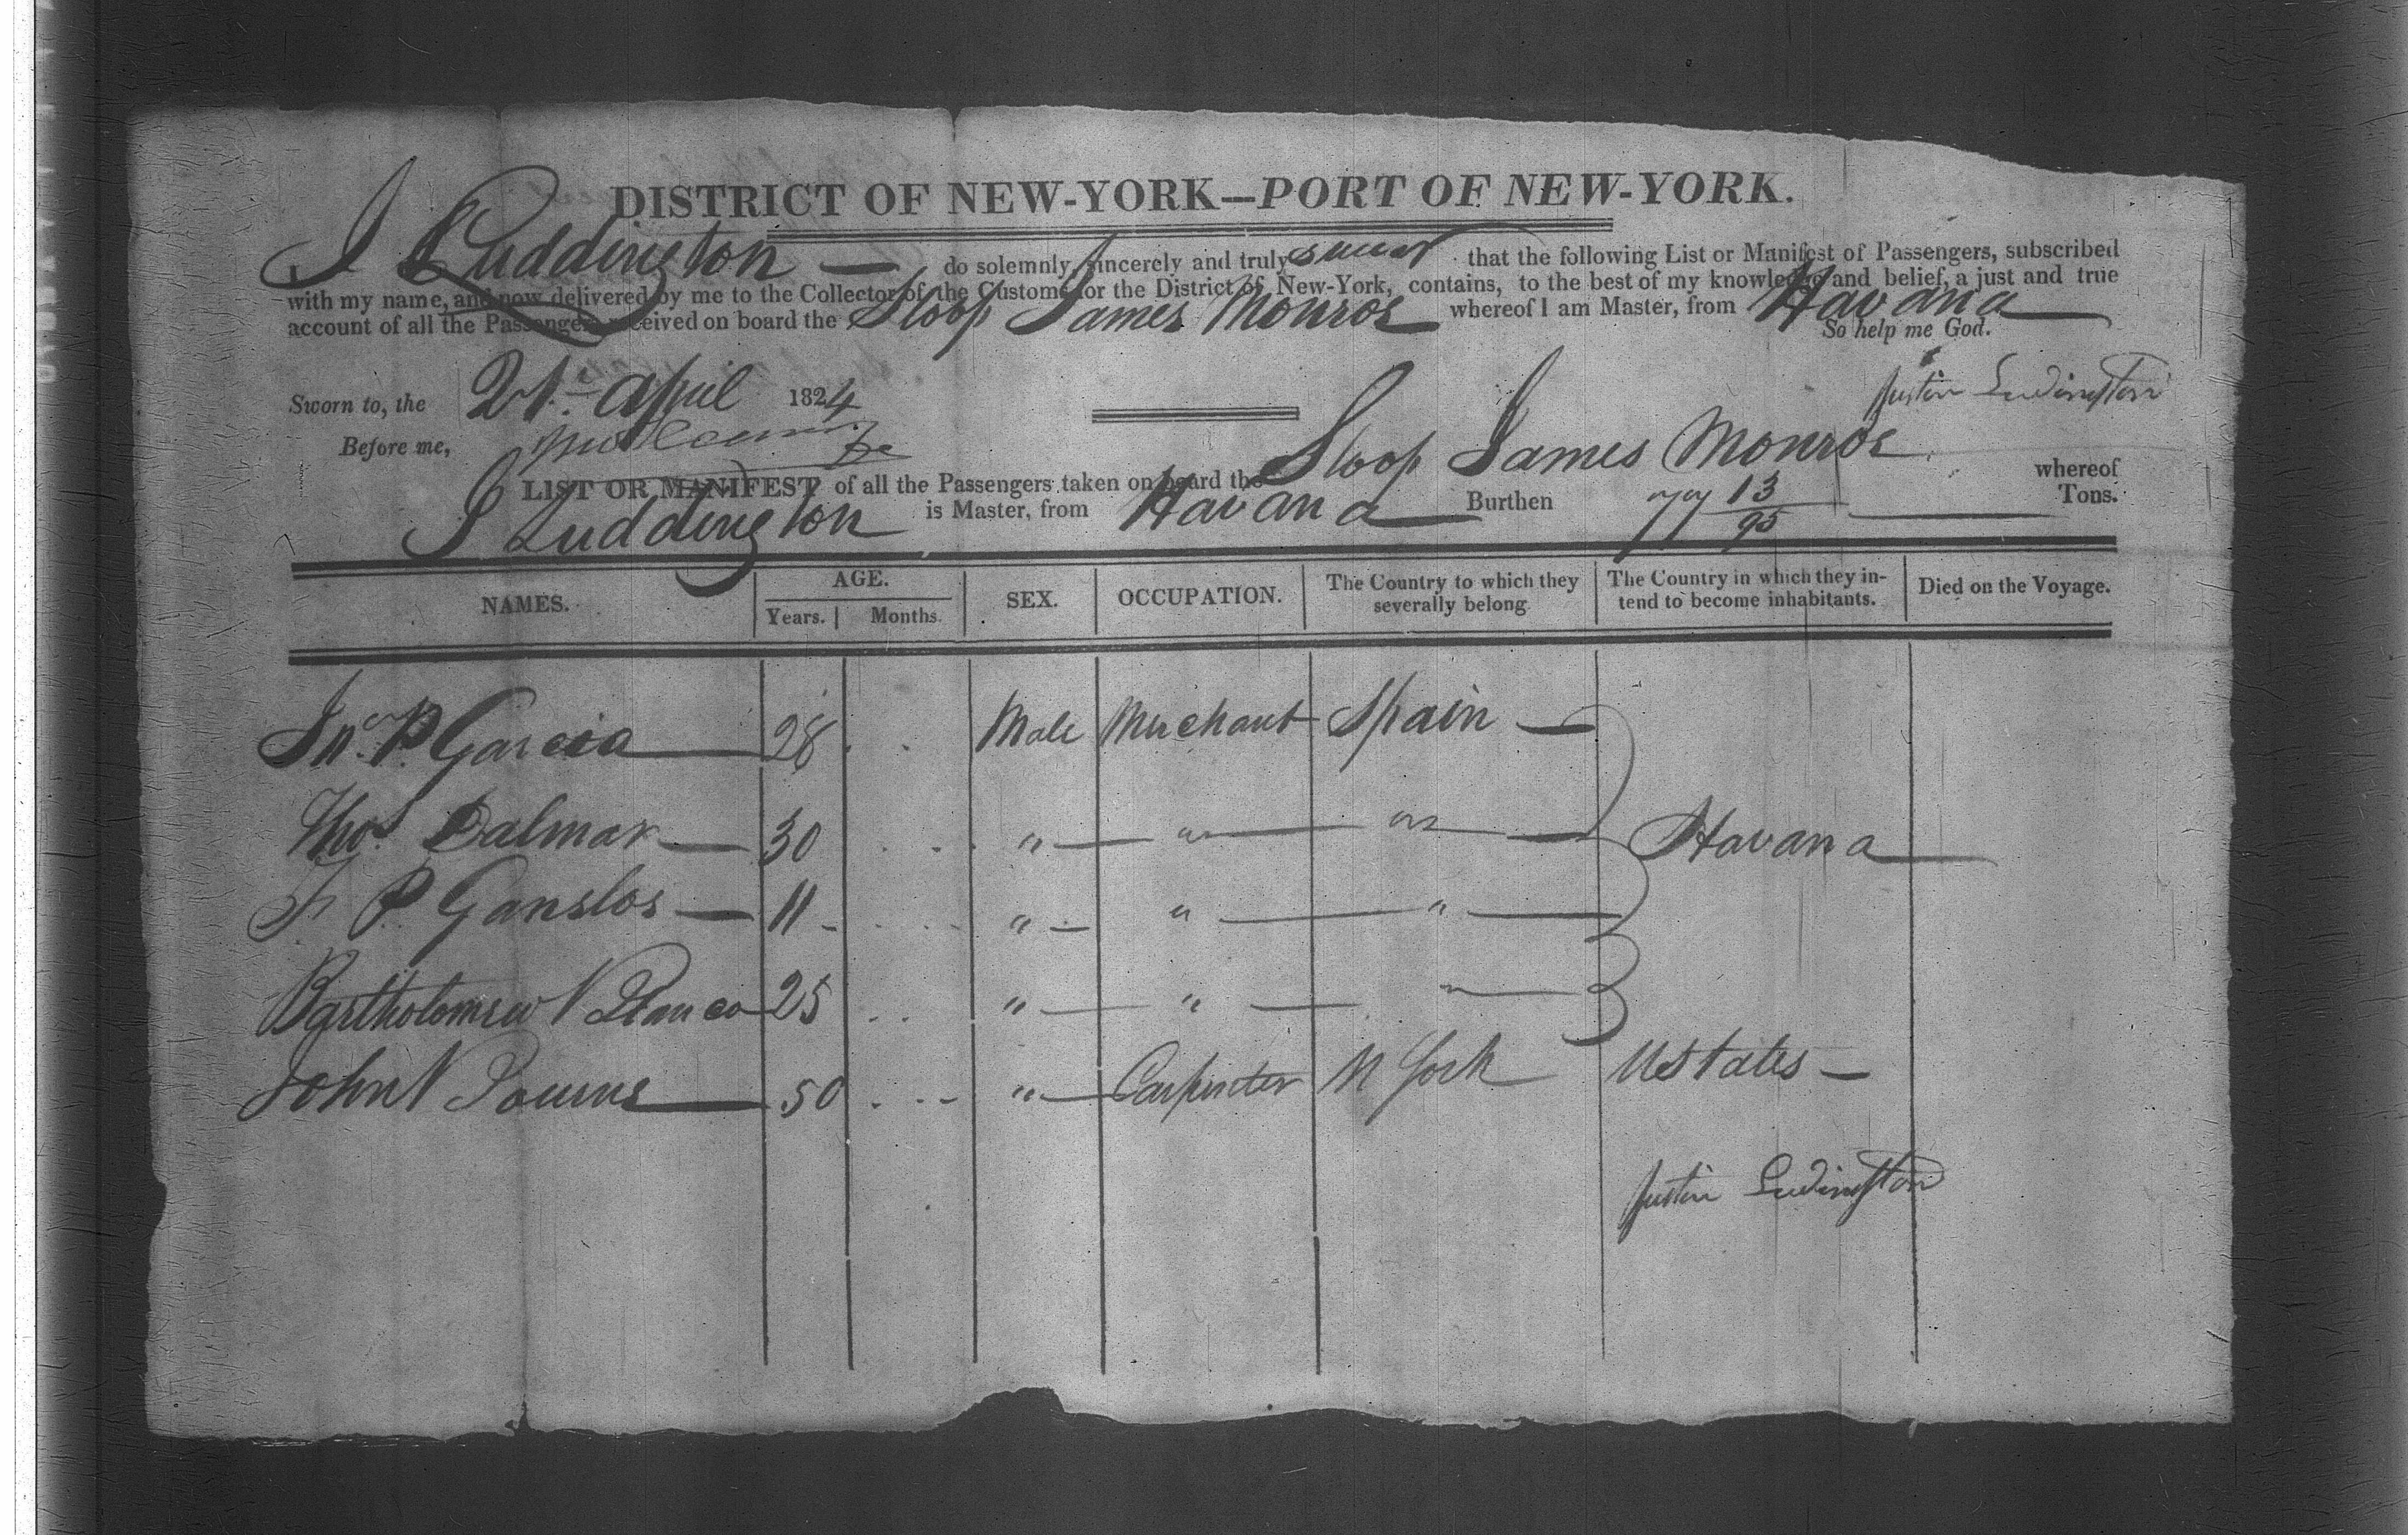 DISTRICT OF NEW-YORK—PORT OF NEW-YORK.
I Luddington — do solemnly, sincerely and truly swear that the following List or Manifest of Passengers, subscribed
with my name, and now delivered by me to the Collector of the Customs for the District of New-York, contains, to the best of my knowledge and belief, a just and true
account of all the Passengers received on board the Sloop James Monroe whereof I am Master, from Havana
So help me God.
Sworn to, the 21st April 1824
Justin Ludington
Before me,
LIST OR MANIFEST of all the Passengers taken on board the Sloop James Monroe whereof
J Luddington is Master, from Havana Burthen 77 13/95 Tons.
NAMES. AGE. Years. Months. SEX. OCCUPATION. The Country to which they severally belong The Country in which they intend to become inhabitants. Died on the Voyage.
Jno. P. Garcia 28 Male Merchant Spain —
Thos. Dalmar 30 " " " Havana
F. P. Ganslos 11 " " "
Bartholomew Blanco 25 " " "
John 50 " Carpenter N York UStates —
Justin Ludington